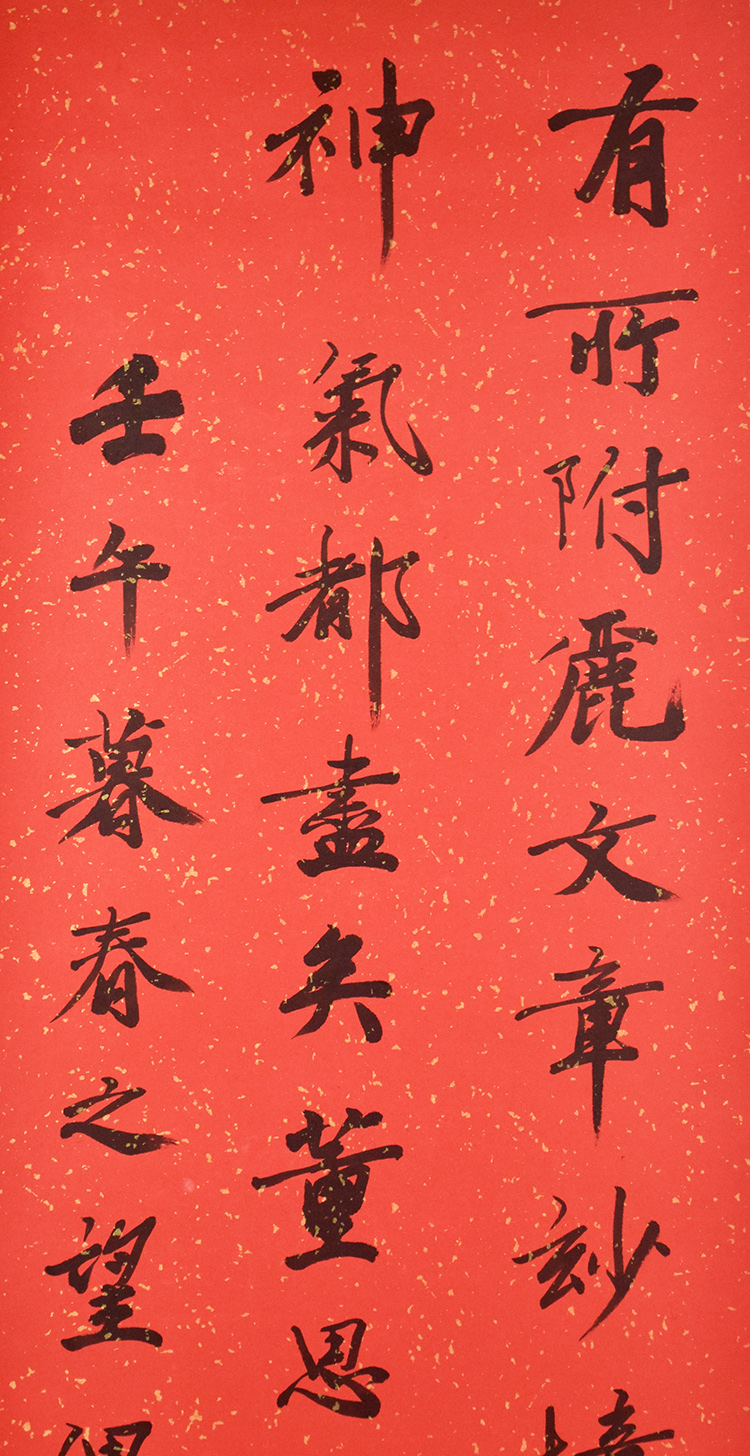 有所附麗文章玅境
神氣都盡矣董思
壬午暮春之望